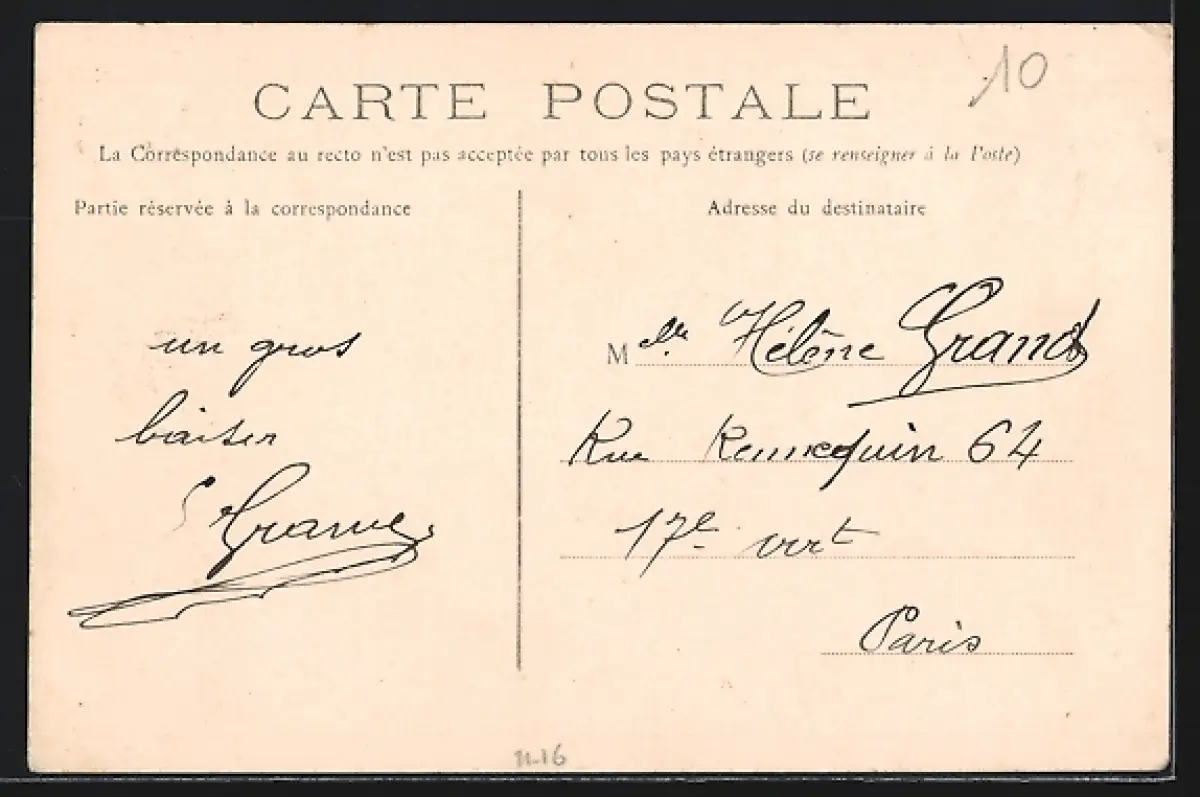 10
CARTE POSTALE
La Correspondance au recto n'est pas acceptée par tous les pays étrangers (se renseigner à la Poste)
Partie réservée à la correspondance
Adresse du destinataire
un gros
baiser
Melle Hélène Grand
Rue Rennequin 64
17e
Paris
11-16